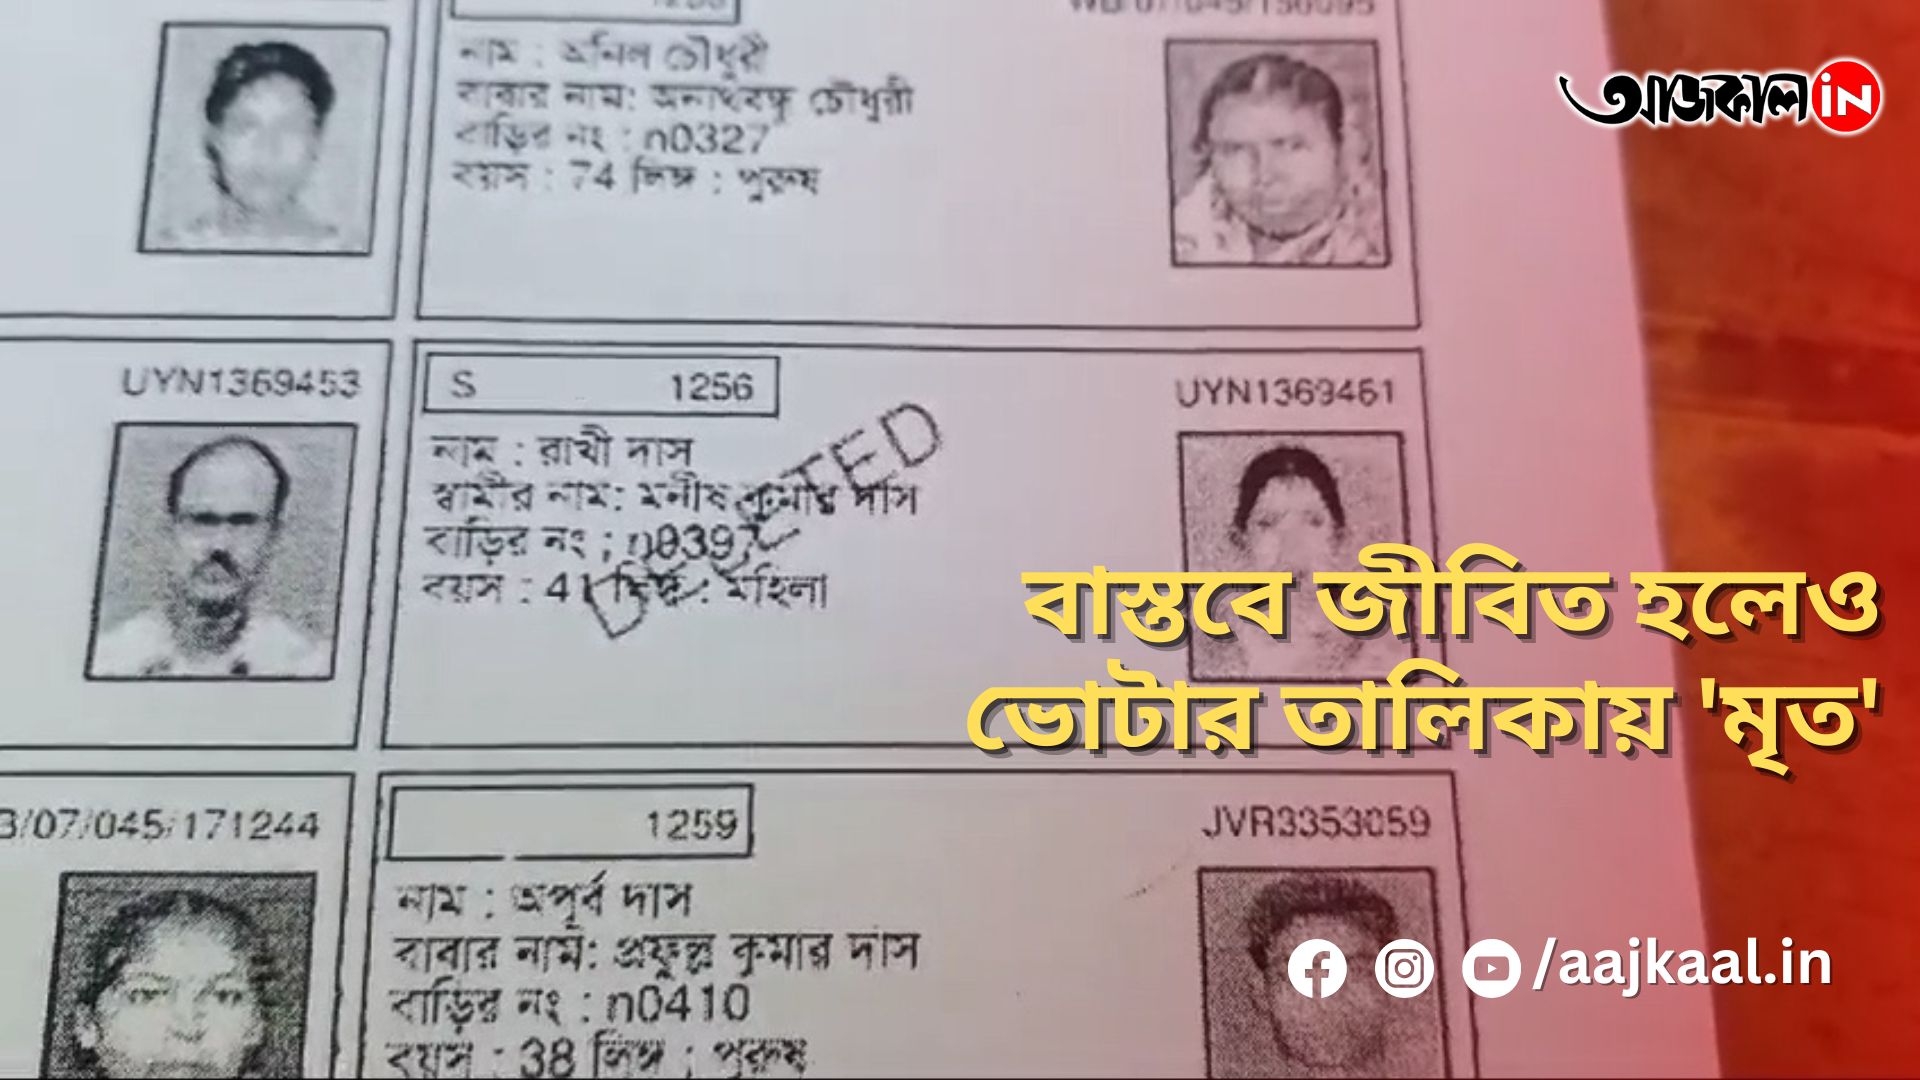 আজকাল in
নাম : অনিল চৌধুরী
বাবার নাম: অনাথবন্ধু চৌধুরী
বাড়ির নং : n0327
বয়স : 74 লিঙ্গ : পুরুষ
UYN1369453
S 1256 UYN1369461
নাম : রাখী দাস
স্বামীর নাম: মনীষ কুমার দাস
বাড়ির নং : n0397
বয়স : 41 লিঙ্গ : মহিলা
DELETED
বাস্তবে জীবিত হলেও
ভোটার তালিকায় 'মৃত'
B/07/045/171244
1259 JVR3353059
নাম : অপূর্ব দাস
বাবার নাম: প্রফুল্ল কুমার দাস
বাড়ির নং : n0410
বয়স : 38 লিঙ্গ : পুরুষ
/aajkaal.in